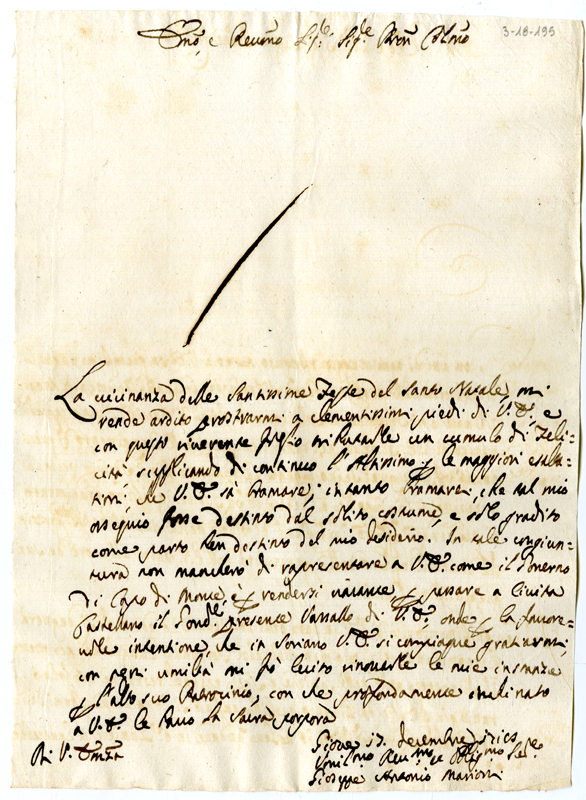 Emo, e Revmo Sig.re Sig.re Pron Colmo
3-18-195
La vicinanza delle Santissime Feste del Santo Natale, mi
rende ardito prostrarmi a clementissimi piedi di V. E., e
con questo riverente foglio tributarle un cumulo di Feli=
cità supplicando di continuo l'Altissimo p le maggiori esalta=
tioni, che V. E. sà bramare; intanto bramarei, che tal mio
ossequio fosse destinto dal solito costume, e solo gradito
come parto ben destinto del mio desiderio. In tale congiun=
tura non mancherò di rapresentare a V. E. come il Governo
di Capo di Monte è p rendersi vacante p passare a Civita
Castellana il presente Vassallo di V. E., onde p la favore=
vole intentione, che in Soriano V. E. si compiaque gratiarmi,
con ogni umiltà mi fò lecito rinovarle le mie instanze
p l'alto suo Patrocinio, con che profondamente inchinato
a V. E. le bacio la Sacra porpora
Di V. Emza
Giove 17. decembre
Umilmo Devmo et Obligmo Se.re
Gioseppe Antonio Marioni